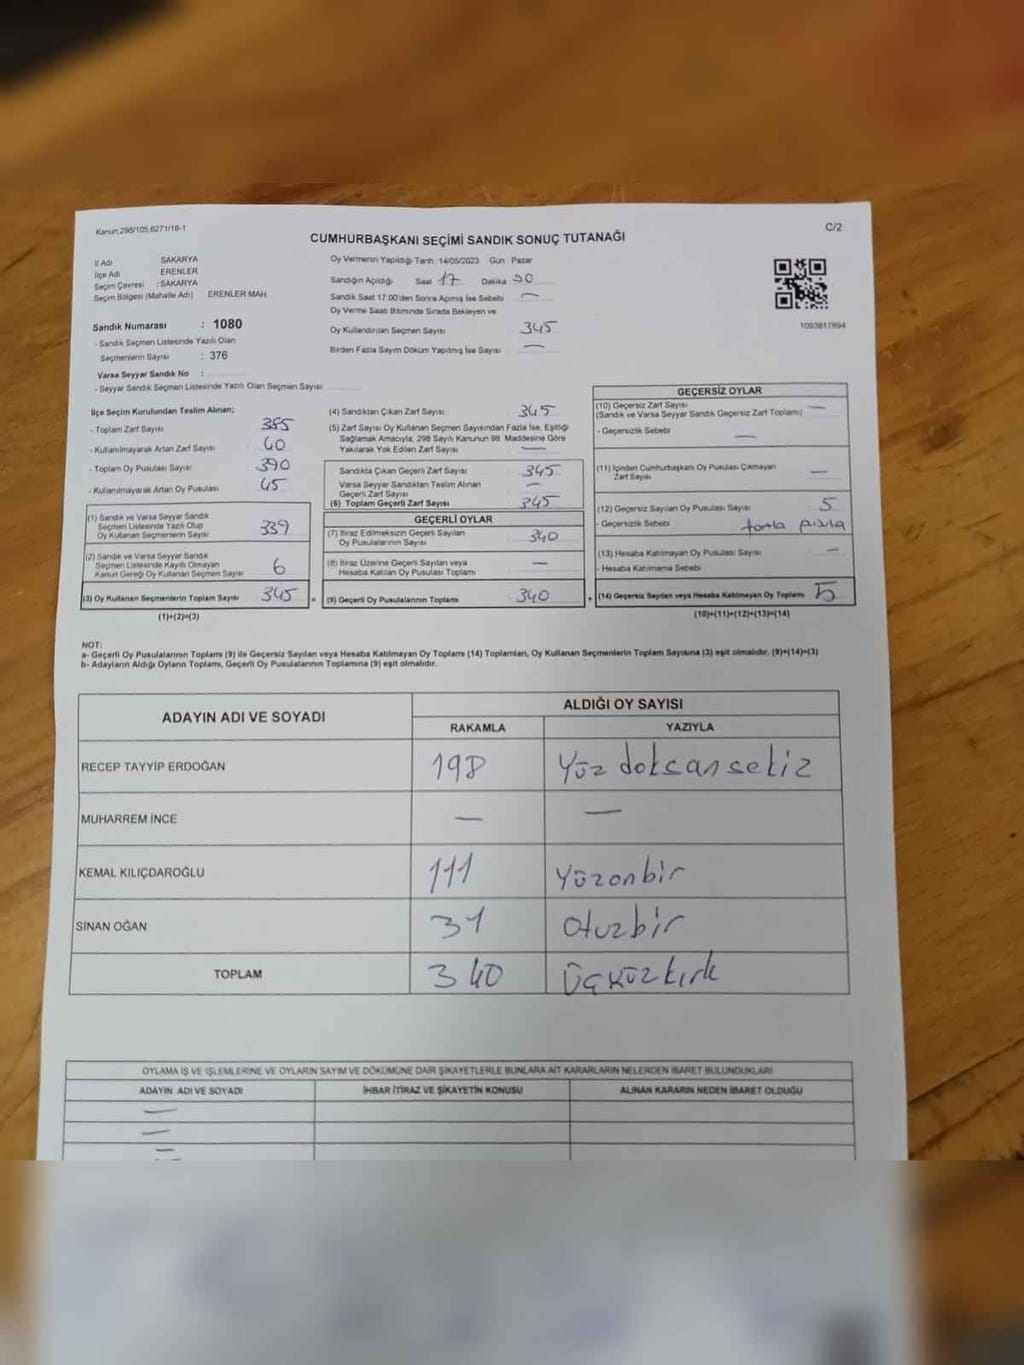 Kanun.298/105,6271/18-1
C/2
CUMHURBAŞKANI SEÇİMİ SANDIK SONUÇ TUTANAĞI
İl Adı SAKARYA
İlçe Adı ERENLER
Seçim Çevresi : SAKARYA
Seçim Bölgesi (Mahalle Adı) ERENLER MAH.
Sandık Numarası : 1080
- Sandık Seçmen Listesinde Yazılı Olan
Seçmenlerin Sayısı : 376
Varsa Seyyar Sandık No :
- Seyyar Sandık Seçmen Listesinde Yazılı Olan Seçmen Sayısı
Oy Vermenin Yapıldığı Tarih :14/05/2023 Gün Pazar
Sandığın Açıldığı Saat 17 Dakika
Sandık Saat 17.00'den Sonra Açılmış İse Sebebi —
Oy Verme Saati Bitiminde Sırada Bekleyen ve
Oy Kullandırılan Seçmen Sayısı 345
Birden Fazla Sayım Döküm Yapılmış İse Sayısı —
1093817894
İlçe Seçim Kurulundan Teslim Alınan;
- Toplam Zarf Sayısı 385
- Kullanılmayarak Artan Zarf Sayısı 40
- Toplam Oy Pusulası Sayısı 390
- Kullanılmayarak Artan Oy Pusulası 45
(1) Sandık ve Varsa Seyyar Sandık
Seçmen Listesinde Yazılı Olup
Oy Kullanan Seçmenlerin Sayısı 339
(2) Sandık ve Varsa Seyyar Sandık
Seçmen Listesinde Kayıtlı Olmayan
Kanun Gereği Oy Kullanan Seçmen Sayısı 6
(3) Oy Kullanan Seçmenlerin Toplam Sayısı 345
(1)+(2)=(3)
(4) Sandıktan Çıkan Zarf Sayısı 345
(5) Zarf Sayısı Oy Kullanan Seçmen Sayısından Fazla İse, Eşitliği
Sağlamak Amacıyla; 298 Sayılı Kanunun 98. Maddesine Göre
Yakılarak Yok Edilen Zarf Sayısı —
Sandıkta Çıkan Geçerli Zarf Sayısı 345
Varsa Seyyar Sandıktan Teslim Alınan
Geçerli Zarf Sayısı —
(6) Toplam Geçerli Zarf Sayısı 345
GEÇERLİ OYLAR
(7) İtiraz Edilmeksizin Geçerli Sayılan
Oy Pusulalarının Sayısı 340
(8) İtiraz Üzerine Geçerli Sayılan veya
Hesaba Katılan Oy Pusulası Toplamı —
= (9) Geçerli Oy Pusulalarının Toplamı 340
GEÇERSİZ OYLAR
(10) Geçersiz Zarf Sayısı —
(Sandık ve Varsa Seyyar Sandık Geçersiz Zarf Toplamı)
- Geçersizlik Sebebi —
(11) İçinden Cumhurbaşkanı Oy Pusulası Çıkmayan
Zarf Sayısı —
(12) Geçersiz Sayılan Oy Pusulası Sayısı 5
- Geçersizlik Sebebi
(13) Hesaba Katılmayan Oy Pusulası Sayısı —
- Hesaba Katılmama Sebebi
+ (14) Geçersiz Sayılan veya Hesaba Katılmayan Oy Toplamı 5
(10)+(11)+(12)+(13)=(14)
NOT:
a- Geçerli Oy Pusulalarının Toplamı (9) ile Geçersiz Sayılan veya Hesaba Katılmayan Oy Toplamı (14) Toplamları, Oy Kullanan Seçmenlerin Toplam Sayısına (3) eşit olmalıdır. (9)+(14)=(3)
b- Adayların Aldığı Oyların Toplamı, Geçerli Oy Pusulalarının Toplamına (9) eşit olmalıdır.
ADAYIN ADI VE SOYADI ALDIĞI OY SAYISI
RAKAMLA YAZIYLA
RECEP TAYYİP ERDOĞAN 198 Yüz doksan sekiz
MUHARREM İNCE — —
KEMAL KILIÇDAROĞLU 111 Yüzonbir
SİNAN OĞAN 31 Otuzbir
TOPLAM 340 Üçyüzkırk
OYLAMA İŞ VE İŞLEMLERİNE VE OYLARIN SAYIM VE DÖKÜMÜNE DAİR ŞİKAYETLERLE BUNLARA AİT KARARLARIN NELERDEN İBARET BULUNDUKLARI
ADAYIN ADI VE SOYADI İHBAR İTİRAZ VE ŞİKAYETİN KONUSU ALINAN KARARIN NEDEN İBARET OLDUĞU
—
—
—